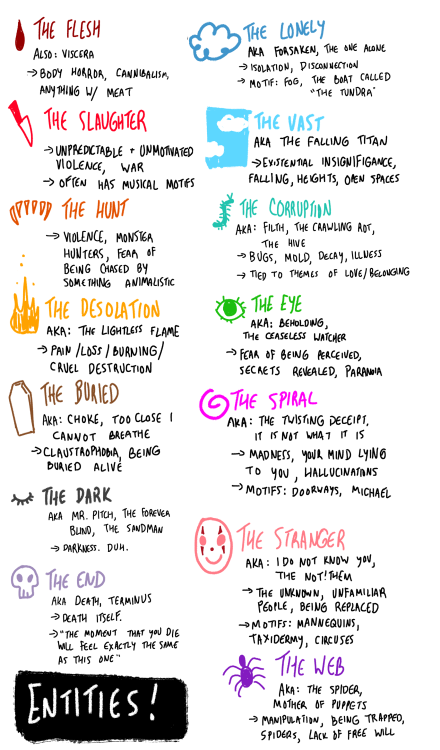 THE FLESH
ALSO: VISCERA
→ BODY HORROR, CANNIBALISM,
ANYTHING W/ MEAT
THE SLAUGHTER
→ UNPREDICTABLE + UNMOTIVATED
VIOLENCE, WAR
→ OFTEN HAS MUSICAL MOTIFS
THE HUNT
→ VIOLENCE, MONSTER
HUNTERS, FEAR OF
BEING CHASED BY
SOMETHING ANIMALISTIC
THE DESOLATION
AKA: THE LIGHTLESS FLAME
→ PAIN/LOSS/BURNING/
CRUEL DESTRUCTION
THE BURIED
AKA: CHOKE, TOO CLOSE I
CANNOT BREATHE
→ CLAUSTROPHOBIA, BEING
BURIED ALIVE
THE DARK
AKA MR. PITCH, THE FOREVER
BLIND, THE SANDMAN
→ DARKNESS. DUH.
THE END
AKA DEATH, TERMINUS
→ DEATH ITSELF.
→ "THE MOMENT THAT YOU DIE
WILL FEEL EXACTLY THE SAME
AS THIS ONE"
ENTITIES!
THE LONELY
AKA FORSAKEN, THE ONE ALONE
→ ISOLATION, DISCONNECTION
→ MOTIF: FOG, THE BOAT CALLED
"THE TUNDRA"
THE VAST
AKA THE FALLING TITAN
→ EXISTENTIAL INSIGNIFIGANCE,
FALLING, HEIGHTS, OPEN SPACES
THE CORRUPTION
AKA: FILTH, THE CRAWLING ROT,
THE HIVE
→ BUGS, MOLD, DECAY, ILLNESS
→ TIED TO THEMES OF LOVE/BELONGING
THE EYE
AKA: BEHOLDING,
THE CEASELESS WATCHER
→ FEAR OF BEING PERCEIVED,
SECRETS REVEALED, PARANOIA
THE SPIRAL
AKA: THE TWISTING DECEIPT,
IT IS NOT WHAT IT IS
→ MADNESS, YOUR MIND LYING
TO YOU, HALLUCINATIONS
→ MOTIFS: DOORWAYS, MICHAEL
THE STRANGER
AKA: I DO NOT KNOW YOU,
THE NOT!THEM
→ THE UNKNOWN, UNFAMILIAR
PEOPLE, BEING REPLACED
→ MOTIFS: MANNEQUINS,
TAXIDERMY, CIRCUSES
THE WEB
AKA: THE SPIDER,
MOTHER OF PUPPETS
→ MANIPULATION, BEING TRAPPED,
SPIDERS, LACK OF FREE WILL